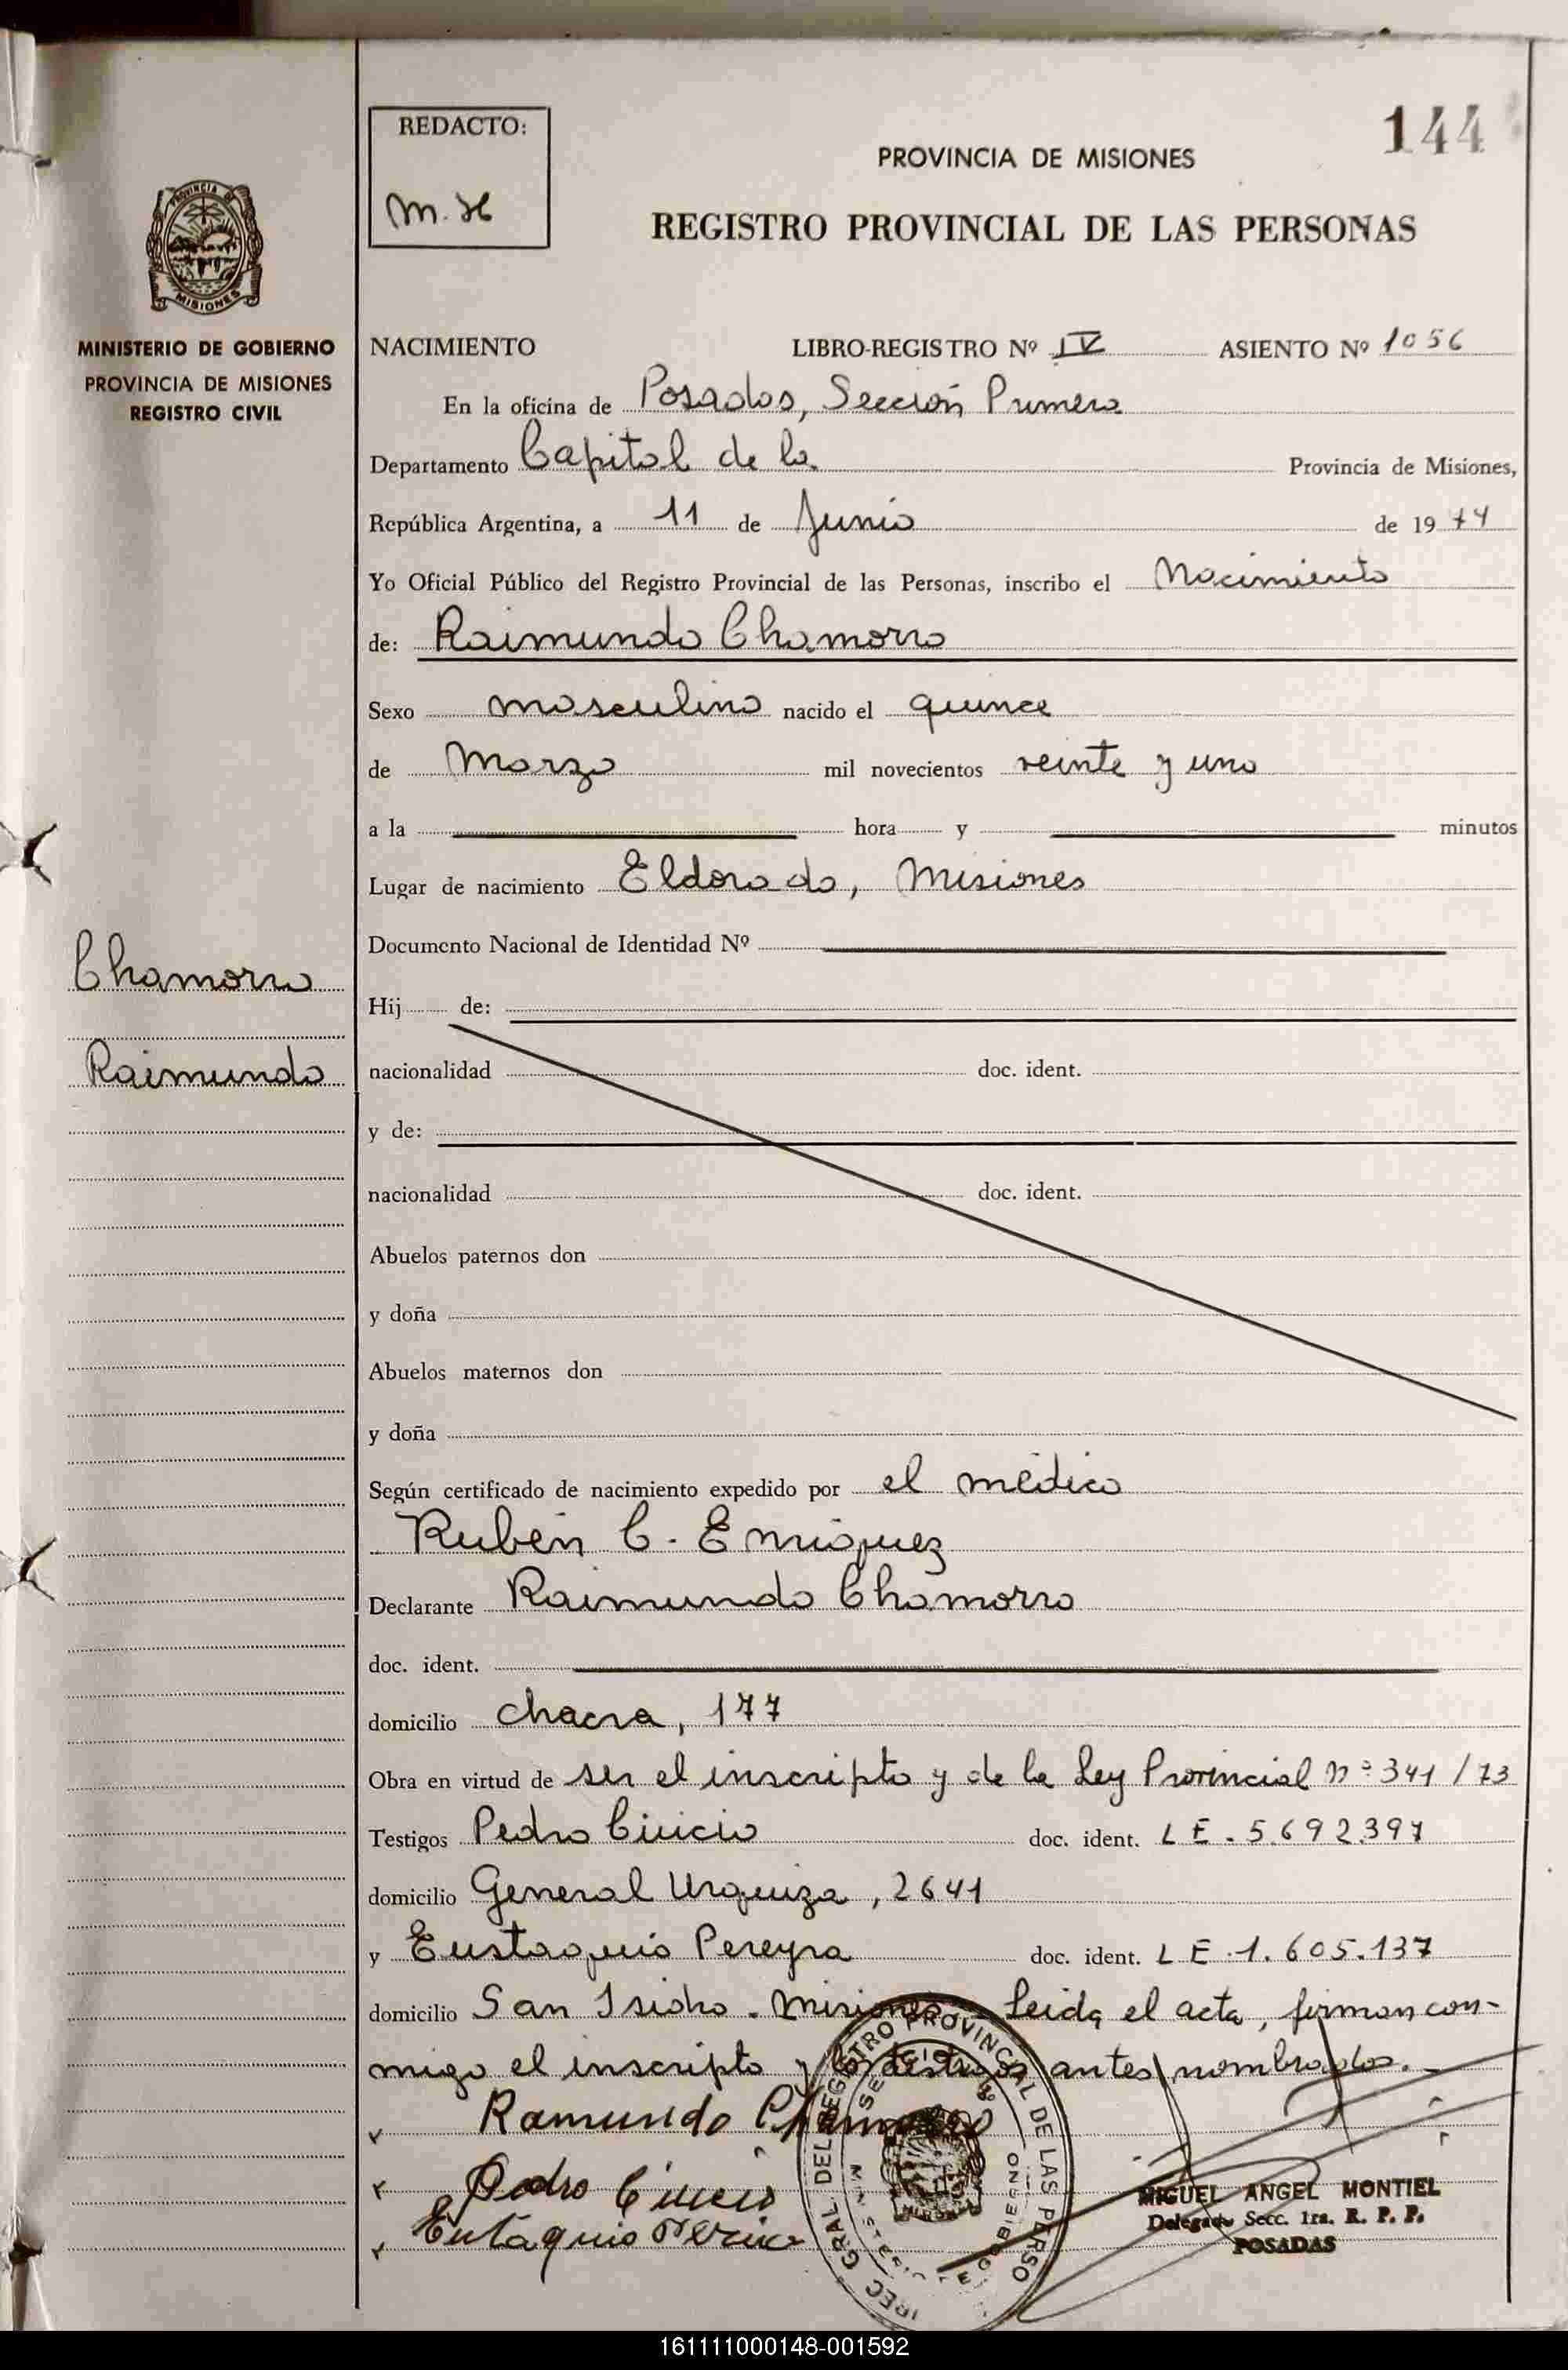 144
REDACTO:
M. H
PROVINCIA DE MISIONES
REGISTRO PROVINCIAL DE LAS PERSONAS
PROVINCIA DE
MISIONES
MINISTERIO DE GOBIERNO
PROVINCIA DE MISIONES
REGISTRO CIVIL
NACIMIENTO LIBRO-REGISTRO Nº IV ASIENTO Nº 1056
En la oficina de Posadas, Sección Primera
Departamento Capital de la Provincia de Misiones,
República Argentina, a 11 de Junio de 1974
Yo Oficial Público del Registro Provincial de las Personas, inscribo el Nacimiento
de: Raimundo Chamorro
Sexo masculino nacido el quince
de Marzo mil novecientos veinte y uno
a la hora y minutos
Lugar de nacimiento Eldorado, Misiones
Documento Nacional de Identidad Nº
Chamorro
Raimundo
Hij de:
nacionalidad doc. ident.
y de:
nacionalidad doc. ident.
Abuelos paternos don
y doña
Abuelos maternos don
y doña
Según certificado de nacimiento expedido por el médico
Rubén C. Enriquez
Declarante Raimundo Chamorro
doc. ident.
domicilio chacra, 177
Obra en virtud de ser el inscripto y de la Ley Provincial nº 341/73
Testigos Pedro doc. ident. L E. 5.692.397
domicilio General Urquiza, 2641
y Eustaquio Pereyra doc. ident. L E. 1.605.137
domicilio San Isidro. Misiones. Leida el acta, firman con-
migo el inscripto y los testigos antes nombrados.
Ramundo Chamorro
Pedro
Eutaquio
MIGUEL ANGEL MONTIEL
Delegado Secc. 1ra. R. P. P.
POSADAS
161111000148-001592